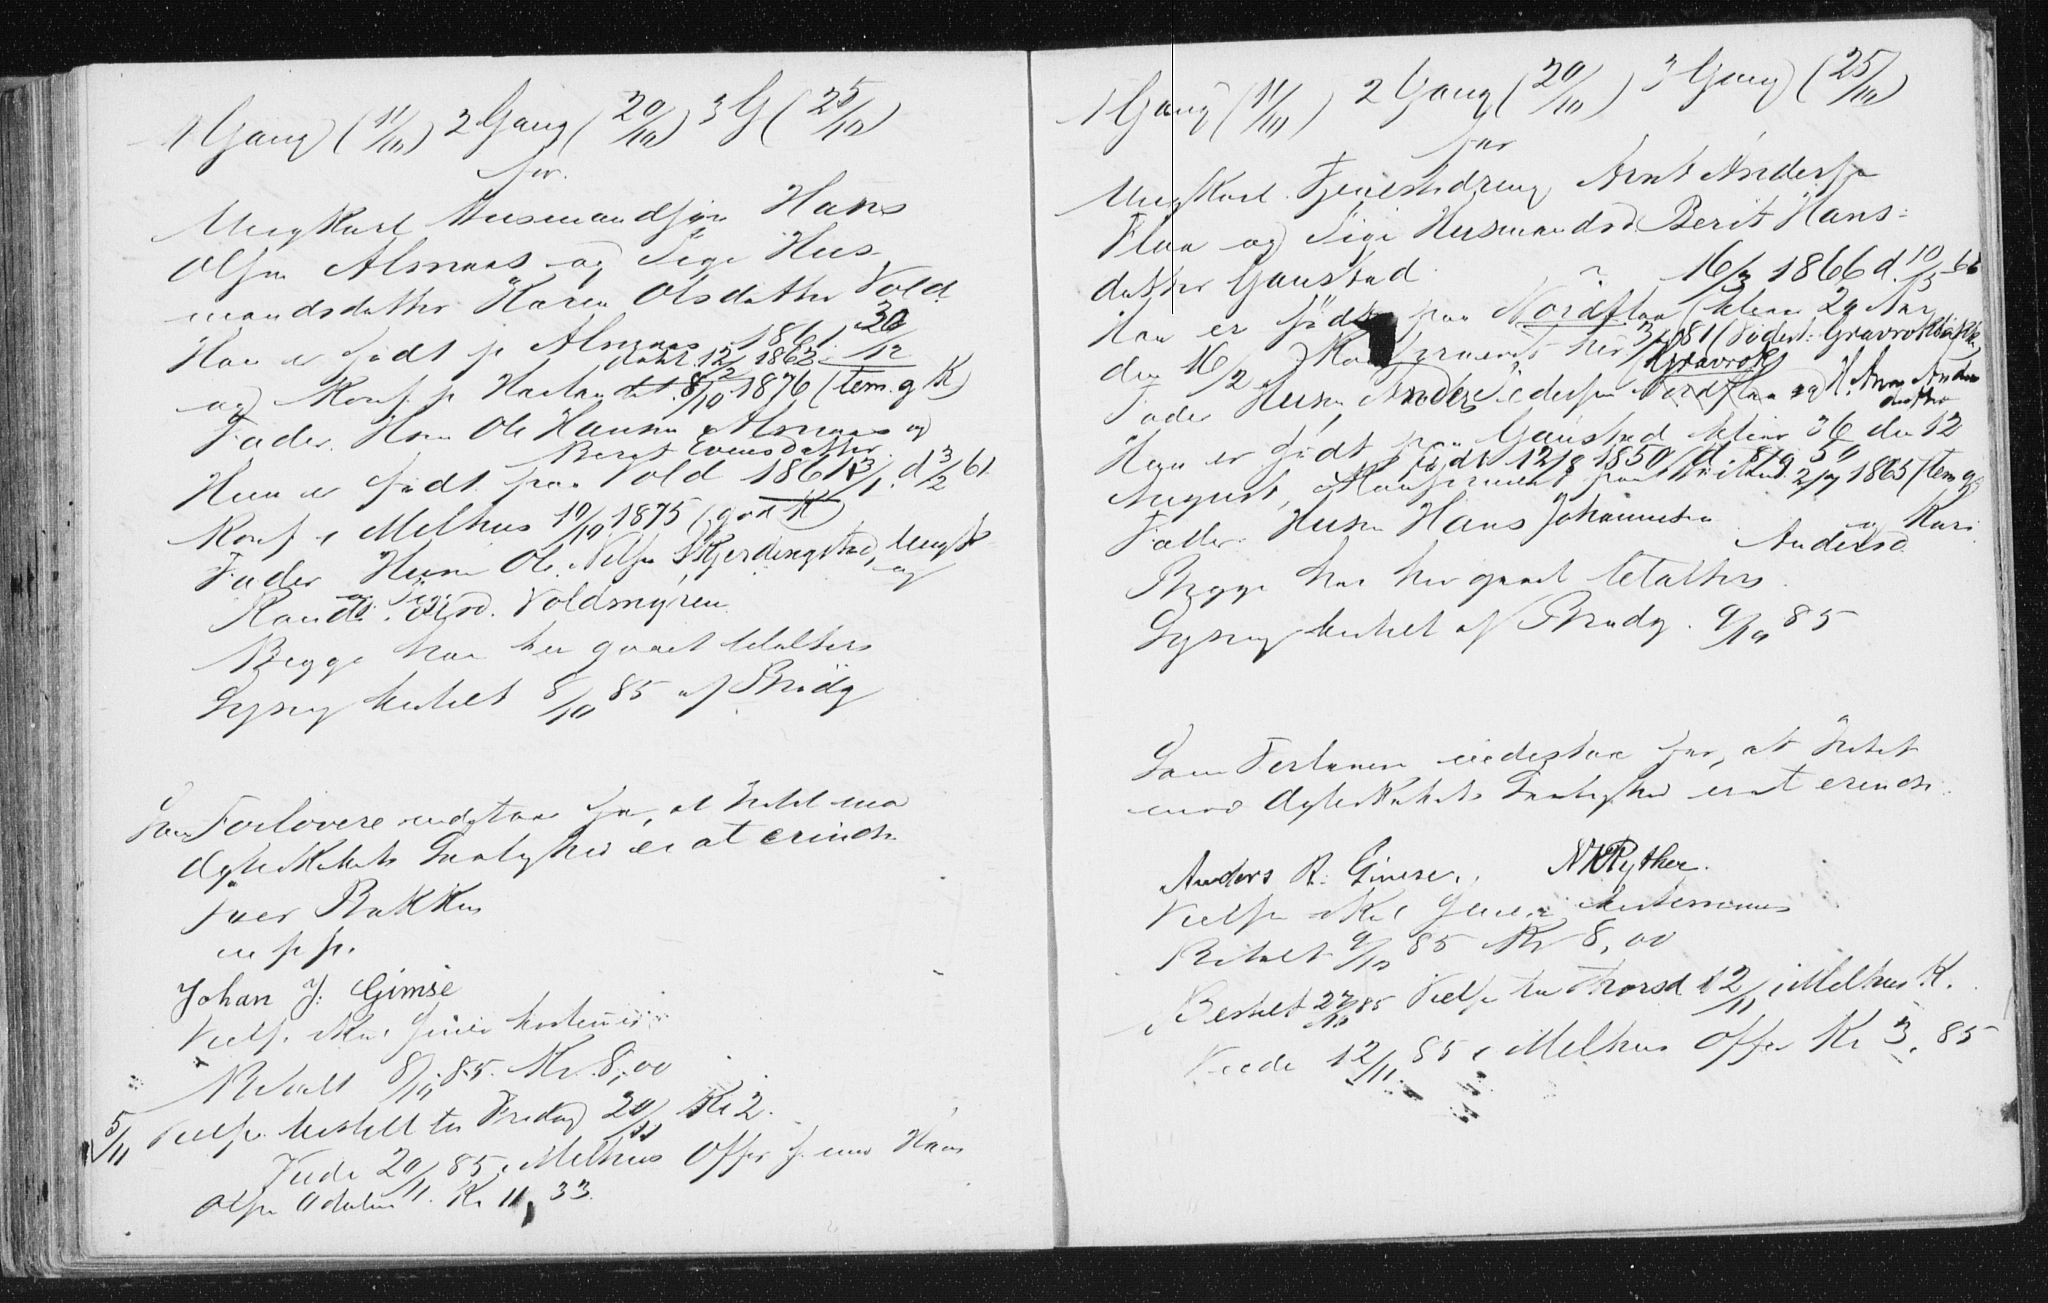 1 Gang (11/10) 2 Gang (20/10) 3 G (25/10)
for
Ungkarl Husmandssøn Hans
Olsen Almaas og Pige Hus
mandsdatter Karen Olsdatter Vold
Han er født p Almaas 1861 30/12
døbt 12/2 1862
og Konf. p 8/10 1876 (tem. g K)
Fader. Hsm Ole Hansen Almaas og
Berit Evensdatter
Hun er født paa Vold 1861 3/1 d 3/2 61
Konf i Melhus 10/10 1875 (god K)
Fader Husm Ole Nilsen Skjerdingstad, Ungk
og
Randi Olsd. Voldmyren
Begge har her gaaet tilalters
Lysng bestilt 8/10 85 af Brudg
Som Forlovere indestaar for, at Intet mod
dgteskabets Lovlighed er at erindr
Iver Bakken
m p p.
Johan J. Gimse
Vielse skal
Betalt 8/10 85. Kr. 8,00
5/11 Vielse bestilt til Fredag 20/11 Kr 2.
Viede 20/11 85 i Melhus Offer f. Hans
Olsen Kr 11,33.
1 Gang (11/10) 2 Gang (20/10) 3 Gang (25/10)
for
Ungkarl Tjenestedreng Arnt Andersen
Flaa og Pige Husmandsd Berit Hans-
datter Gaustad
16/2 1866 d. 10/5 66
Han er født paa Nordflaa
den 16/2 her 81
Gravrok
Fader Husm Anders Pedersen Nordflaa og H. Anne Anders
datter
Hun er født paa Gaustad 36 den 12
født 12/8 1850
August, Konfirmeret paa 1865 (tem g
Fader. Husm Hans Johannesen og Kari
Andersd
Begge har her gaaet tilalters.
Lysng bestilt af Brudg. 9/10 85
Som Forlovere indestaar for, at Intet
mod dgteskabets Lovlighed er at erindr.
Anders R. Gimse, N K Ryther.
Vielse skal
Betalt 9/10 85 Kr 8,00
Bestilt 27/10 85 Vielse til Thorsd 12/11 i Melhus K.
Viede 12/11 85 i Melhus Offer Kr 3,85